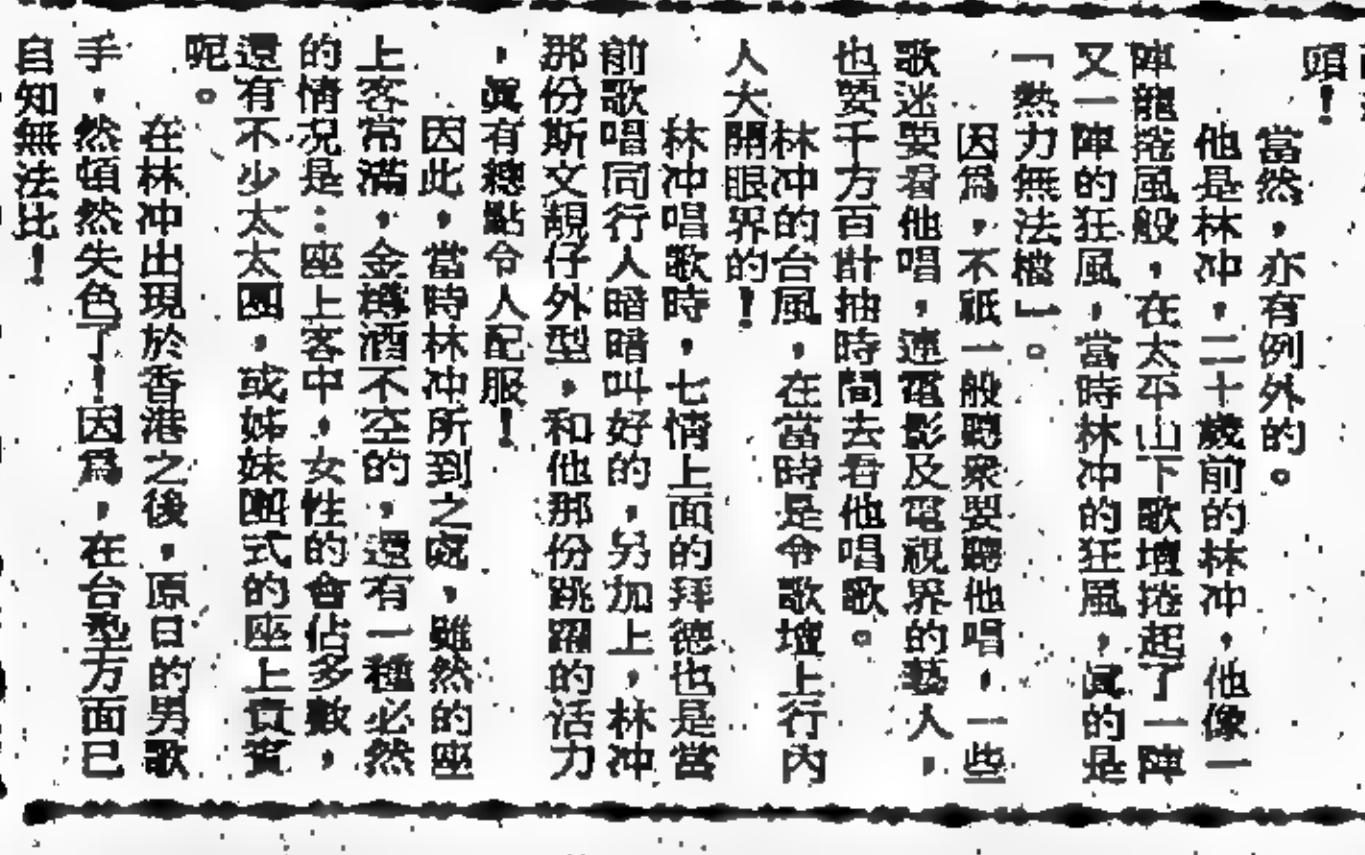 頭！
當然，亦有例外的。
他是林冲，二十歲前的林冲，他像一
陣龍捲風般，在太平山下歌壇捲起了一陣
又一陣的狂風，當時林冲的狂風，眞的是
「熱力無法擋」。
因爲，不祇一般聽衆要聽他唱，一些
歌迷要看他唱，連電影及電視界的藝人，
也要千方百計抽時間去看他唱歌。
林冲的台風，在當時是令歌壇上行內
人大開眼界的！
林冲唱歌時，七情上面的拜德也是當
前歌唱同行人暗暗叫好的，另加上，林冲
那份斯文靚仔外型，和他那份跳躍的活力
，眞有總點令人配服！
因此，當時林冲所到之處，雖然的座
上客常滿，金樽酒不空的，還有一種必然
的情况是：座上客中，女性的會佔多數，
還有不少太太團，或姊妹團式的座上貴賓
呢。
在林冲出現於香港之後，原日的男歌
手，然頓然失色了！因爲，在台型方面已
自知無法比！